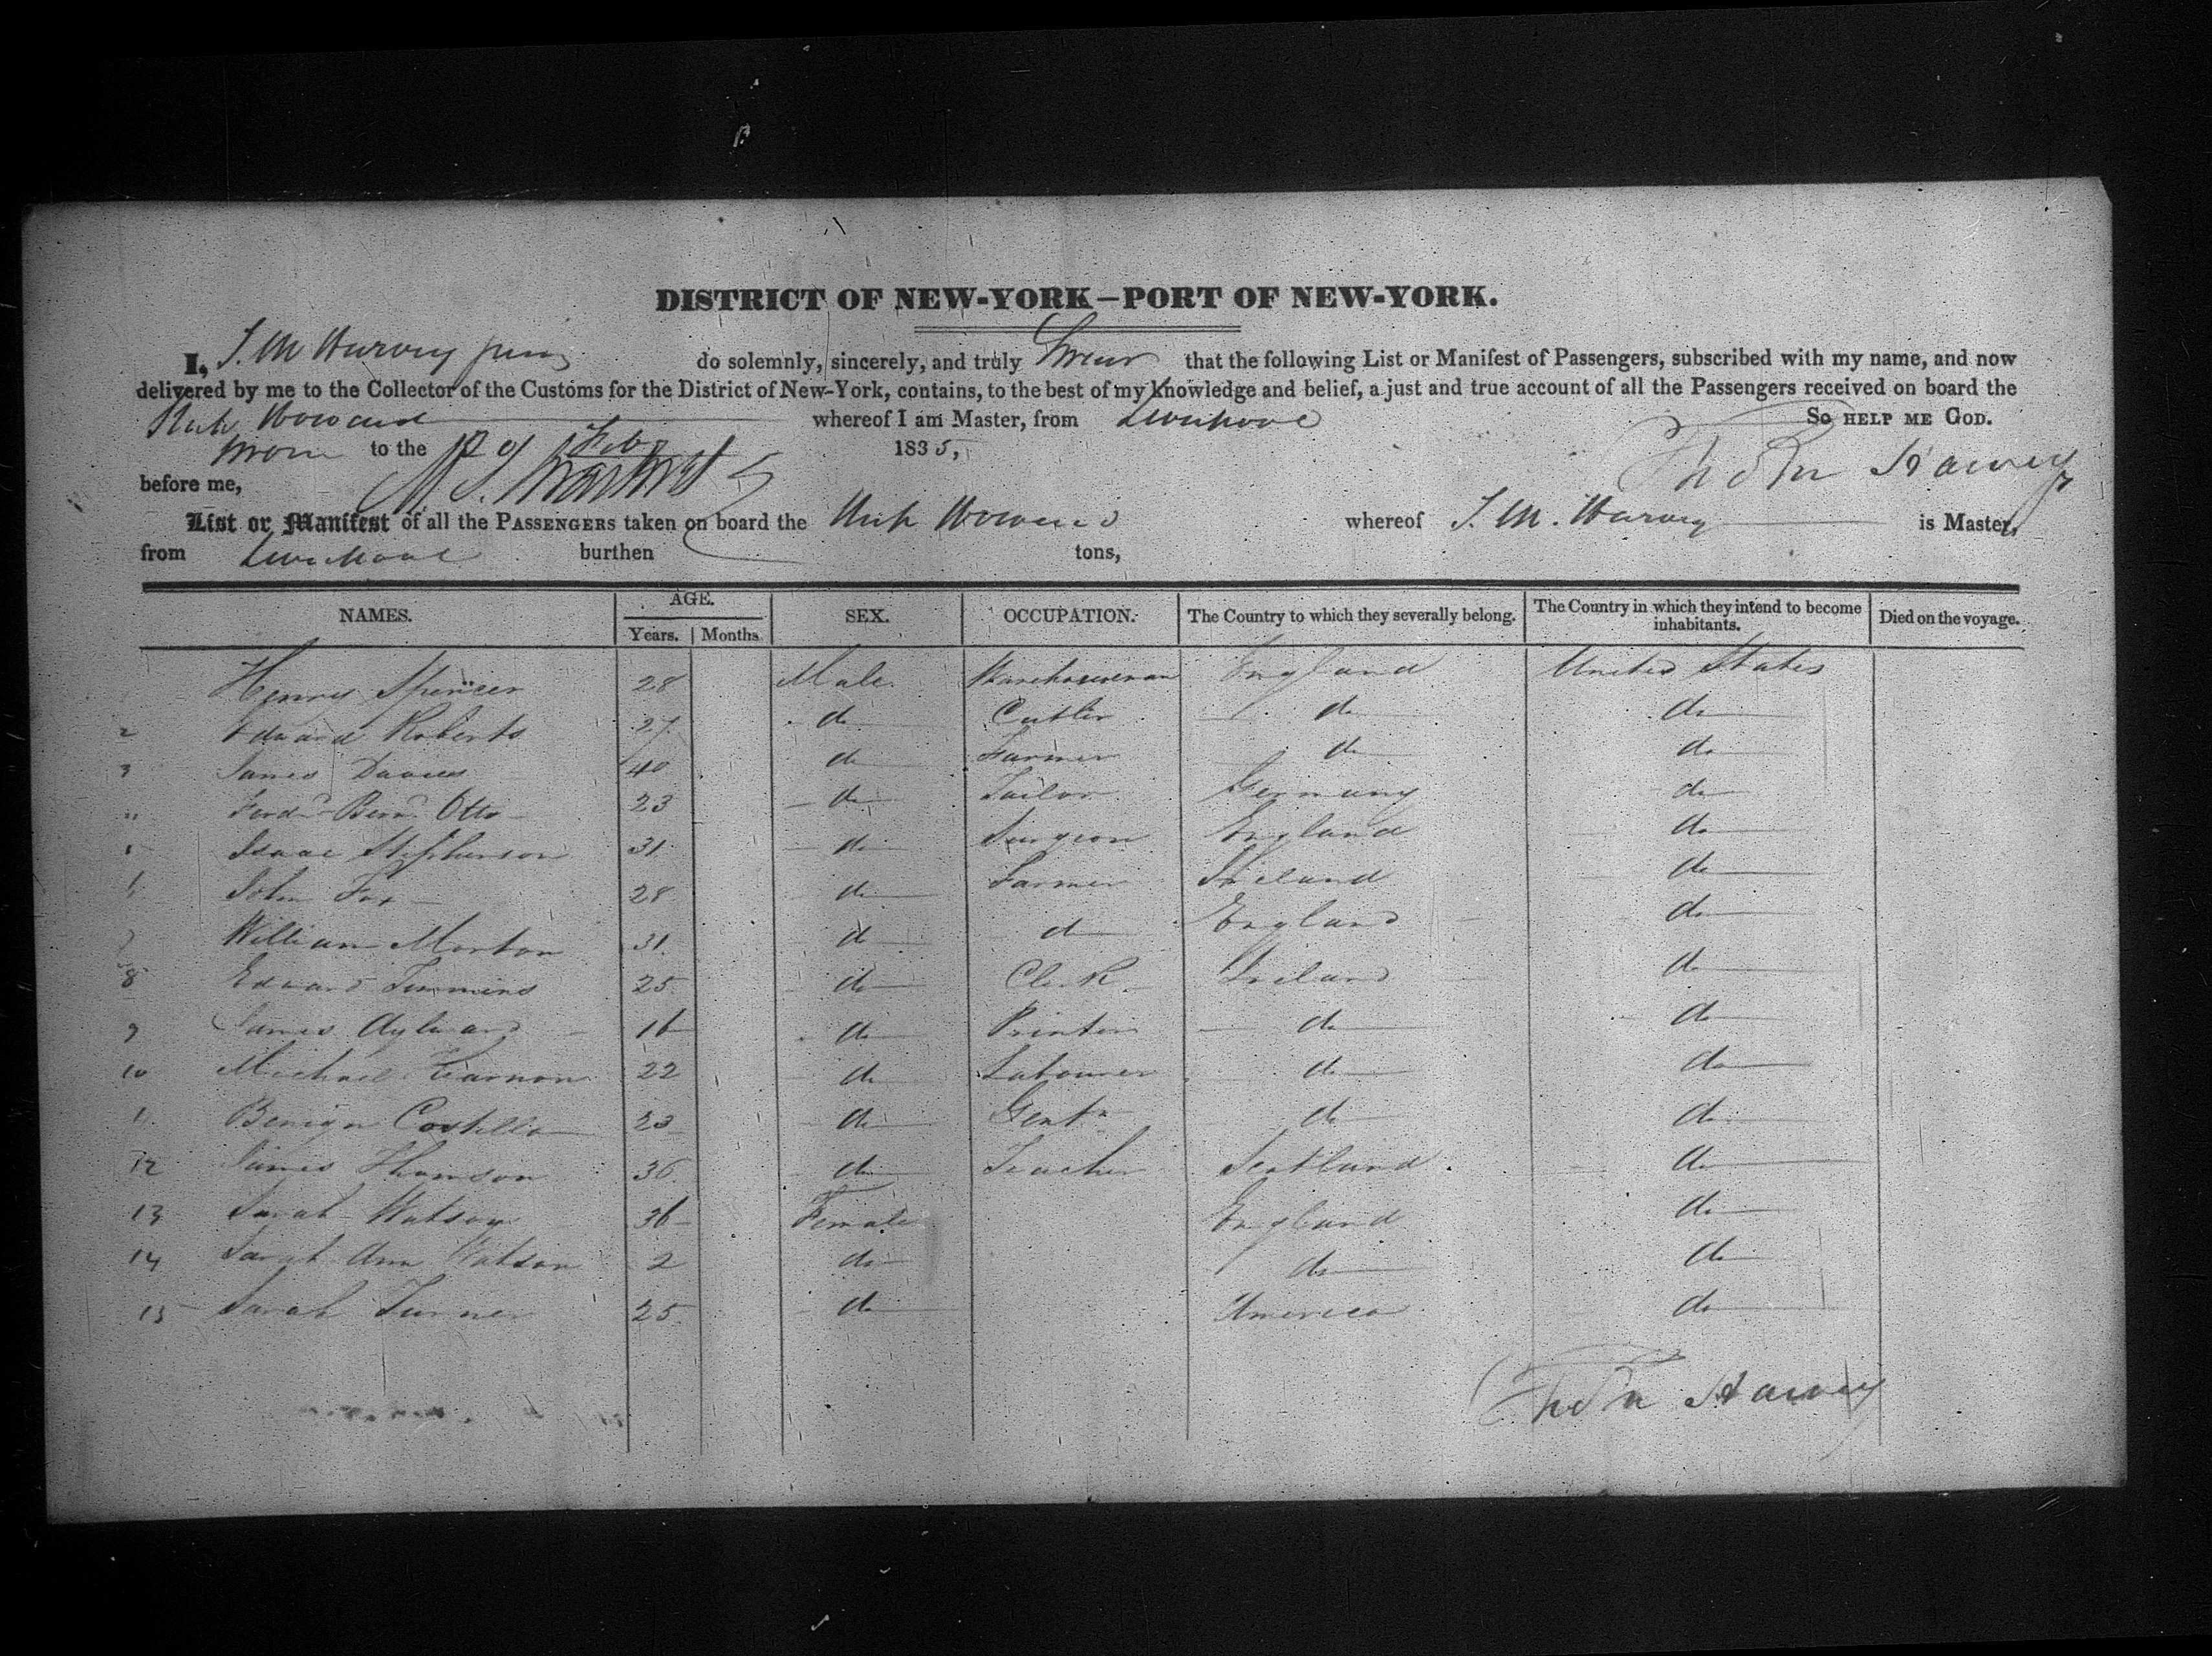 DISTRICT OF NEW-YORK—PORT OF NEW-YORK.
I, T. M Harvey do solemnly, sincerely, and truly Swear that the following List or Manifest of Passengers, subscribed with my name, and now
delivered by me to the Collector of the Customs for the District of New-York, contains, to the best of my knowledge and belief, a just and true account of all the Passengers received on board the
Ship Howard whereof I am Master, from Liverpool So HELP ME GOD.
Sworn to the Feb 1835,
before me, Harvey
List or Manifest of all the PASSENGERS taken on board the Ship Howard whereof T. M. Harvey is Master,
from Liverpool burthen tons,
NAMES. AGE. Years. Months SEX. OCCUPATION. The Country to which they severally belong. The Country in which they intend to become inhabitants. Died on the voyage.
Henry Spencer 28 Male Warehouseman England United States
2 Edward Roberts 27 do Cutler do do
3 James Davies 40 do Farmer do do
Ferd Bern Otto 23 do Tailor Germany do
Isaac Stephenson 31 do Surgeon England do
John Fox 28 do Farmer Ireland do
7 William Morton 31 do do England do
8 Edward Timmins 25 do Clerk Ireland do
9 James Aylward 16 do Printer do do
10 Michael 22 do Labourer do do
Costello 23 do Gent do do
12 James Thomson 36 do Teacher Scotland do
13 Sarah Watson 36 Female England do
14 Sarah Ann Watson 2 do do do
15 Sarah Turner 25 do America do
Harvey